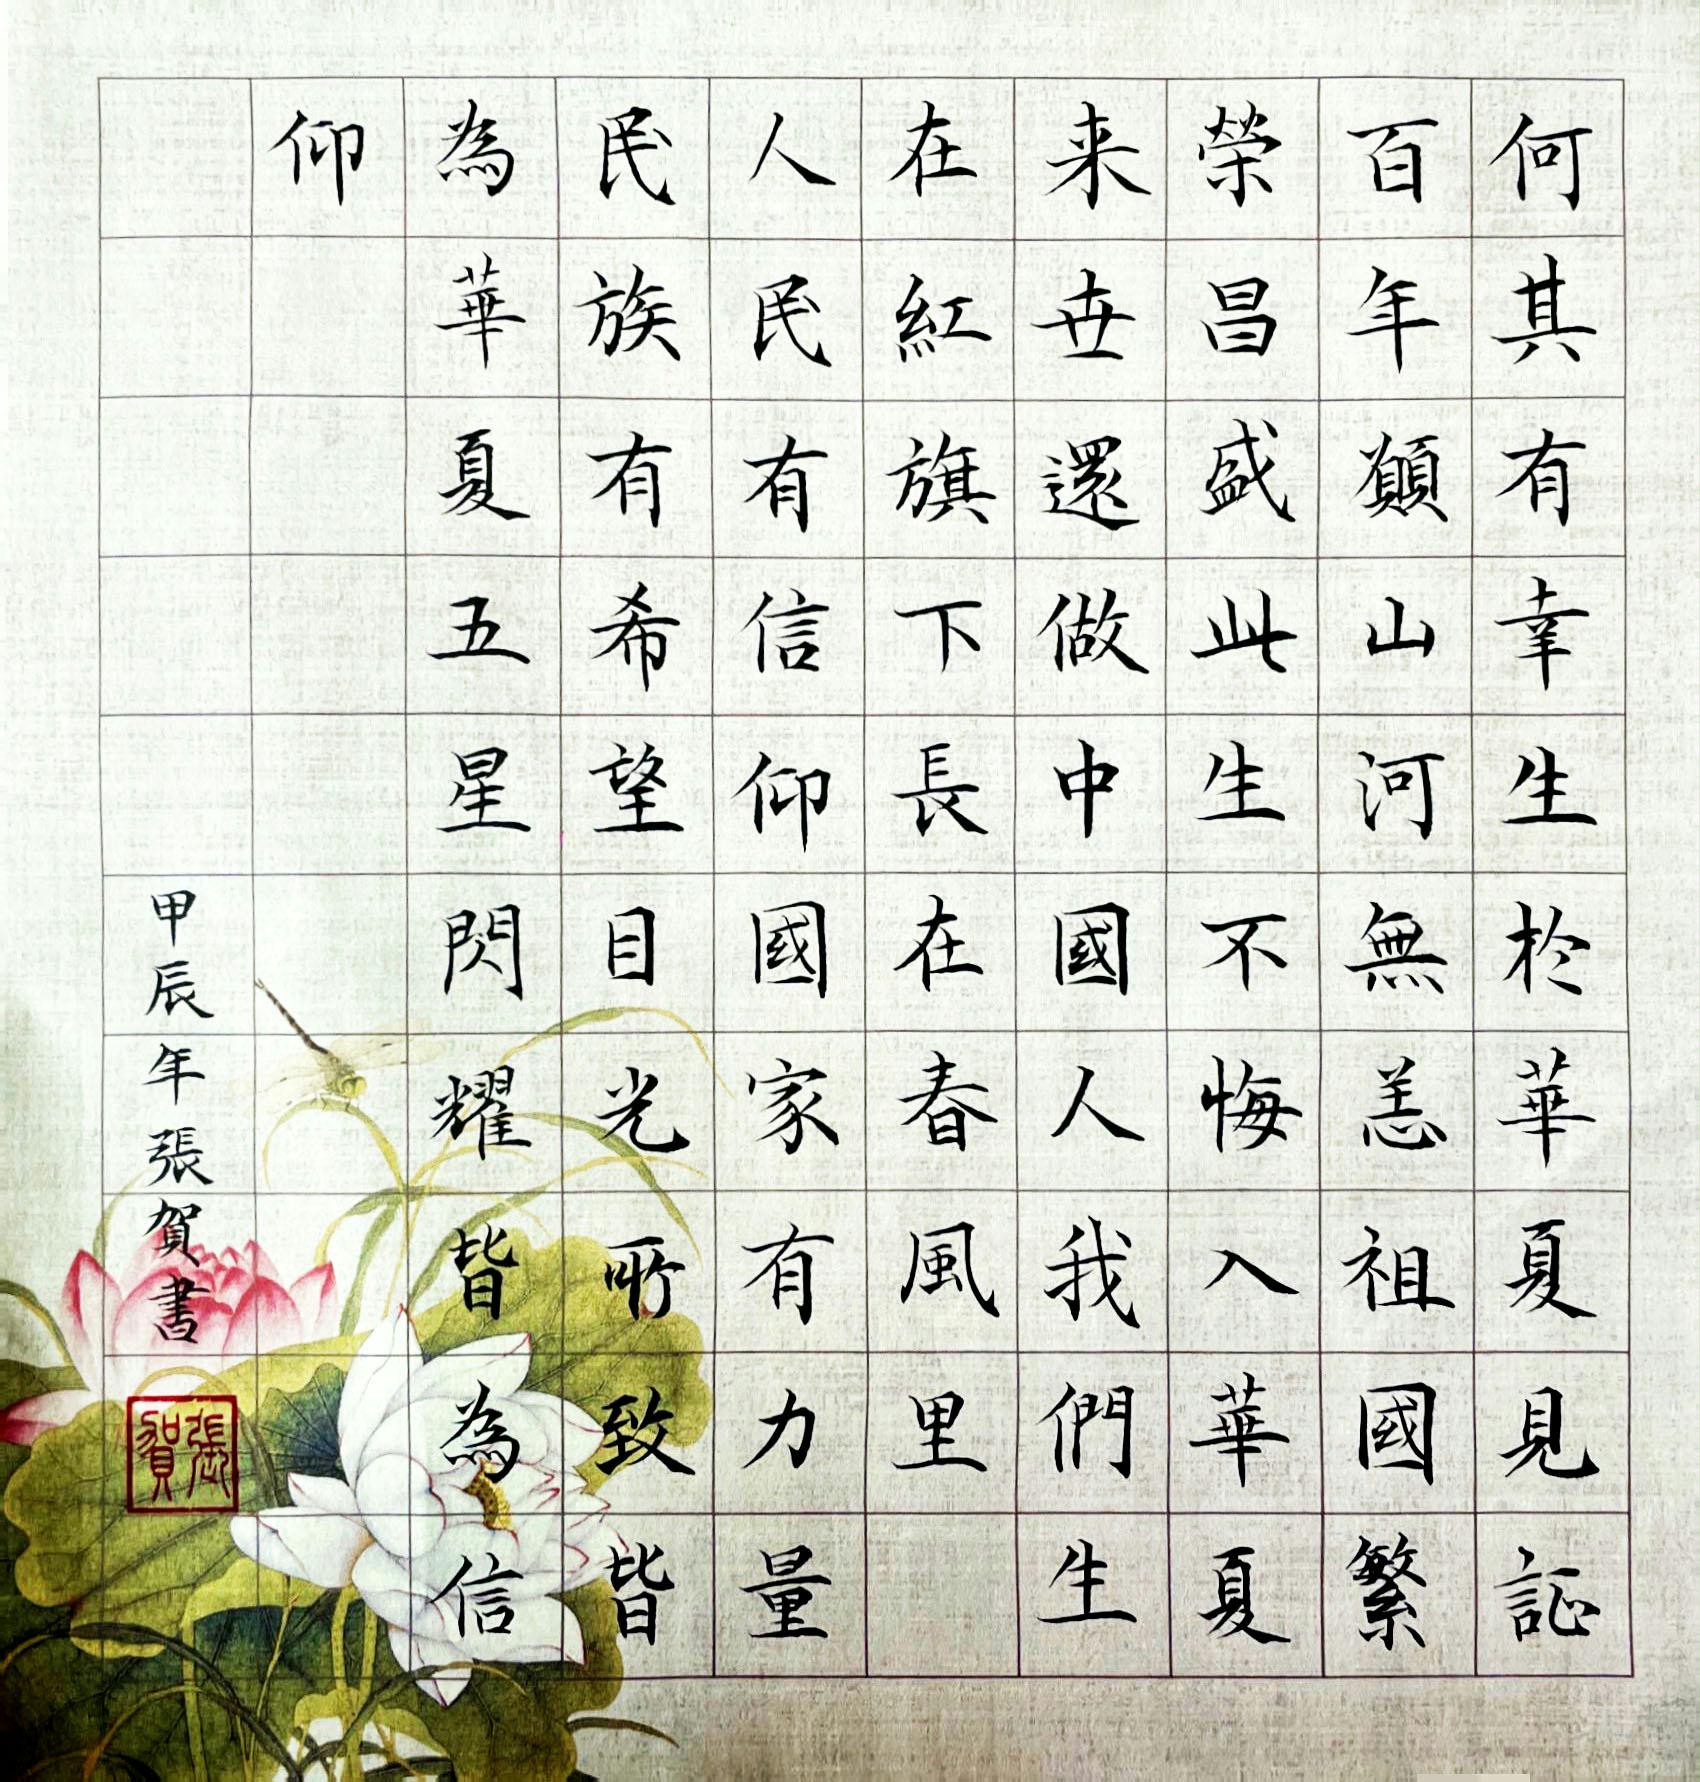 何其有幸生於華夏見証
百年顚山河無恙祖國繁
榮昌盛此生不悔入華夏
来世還做中國人我們生
在紅旗下長在春風里
人民有信仰國家有力量
民族有希望目光所致皆
為華夏五星閃耀皆為信
仰
甲辰年張賀書
張賀